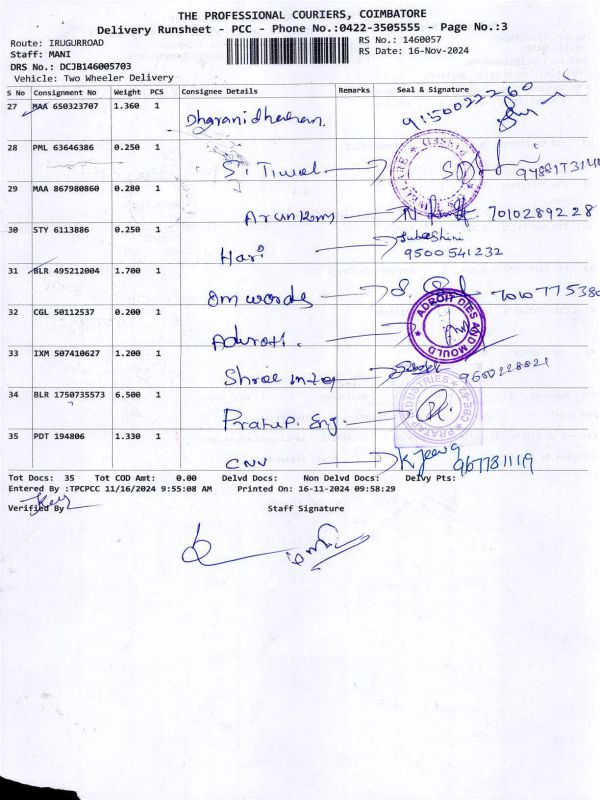 THE PROFESSIONAL COURIERS, COIMBATORE
Delivery Runsheet - PCC - Phone No.:0422-3505555 - Page No.:3
Route: IRUGURROAD
RS No.: 1460057
Staff: MANI
RS Date: 16-Nov-2024
DRS No.: DCJB146005703
Vehicle: Two Wheeler Delivery
S No Consignment No Weight PCS Consignee Details Remarks Seal & Signature
27 MAA 650323707 1.360 1 Dharanidharan. 9150022260
28 PML 63646386 0.250 1 S. Tiwal
29 MAA 867980860 0.280 1 Arunkumar 7010289228
30 STY 6113886 0.250 1 Hari Subashini 9500541232
31 BLR 495212004 1.700 1 Om words
32 CGL 50112537 0.200 1 Adroit. ADROIT DIES AND MOULD
33 IXM 507410627 1.200 1 Shree
34 BLR 1750735573 6.500 1 Pratap. Eng. PRATAP INDUSTRIES CBE-62
35 PDT 194806 1.330 1 CNN
Tot Docs: 35 Tot COD Amt: 0.00 Delvd Docs: Non Delvd Docs: Delvy Pts:
Entered By :TPCPCC 11/16/2024 9:55:08 AM Printed On: 16-11-2024 09:58:29
Verified By Staff Signature